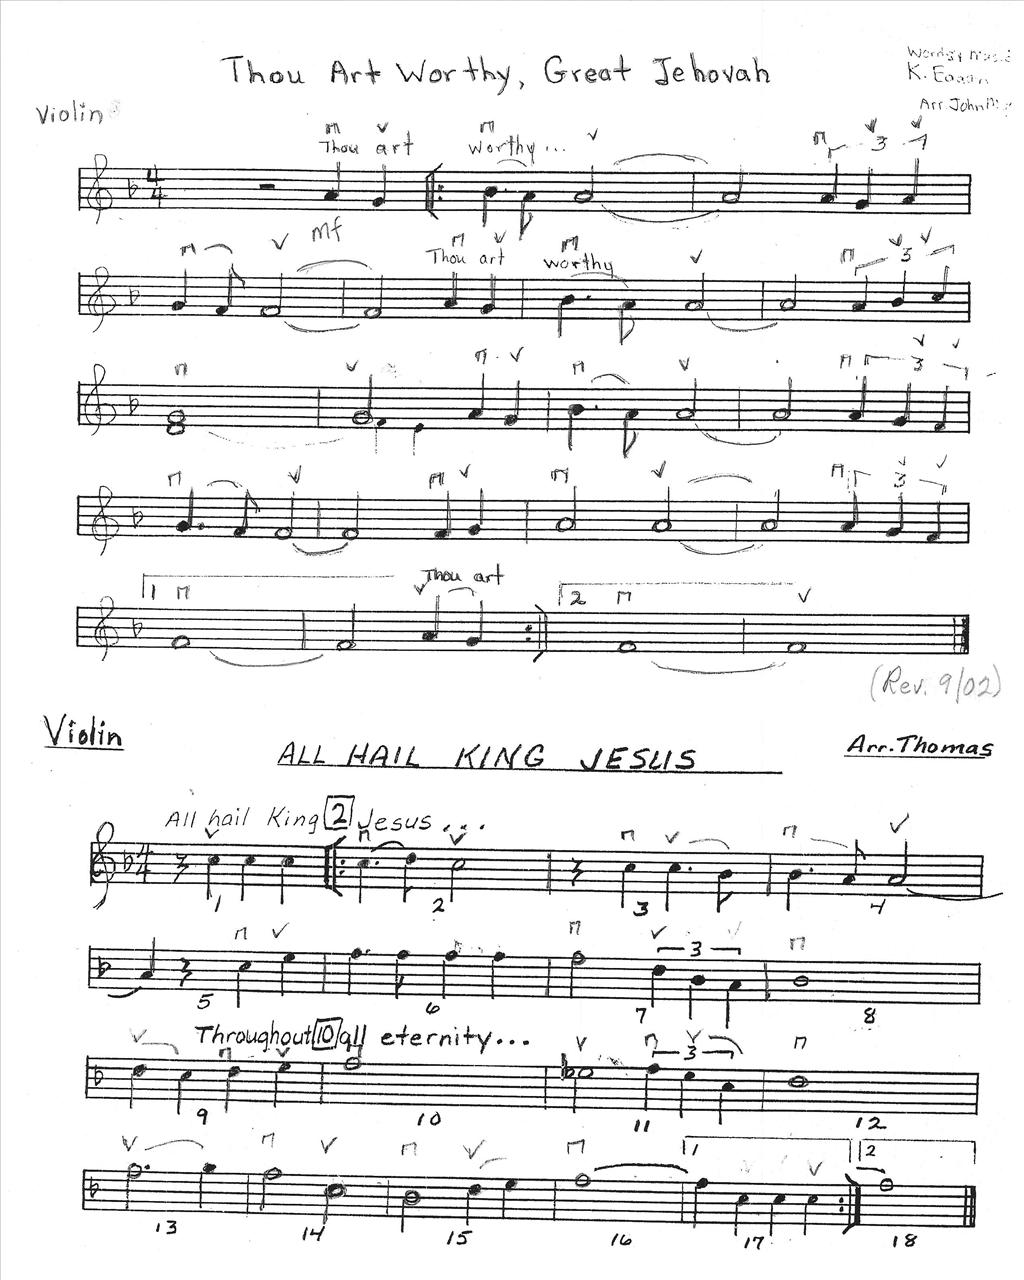 Thou Art Worthy, Great Jehovah
Words & Mus
K. Eagan
Violin
Arr. John
Thou art worthy...
3
4
4
mf
Thou art worthy
3
3
3
Thou art
1
2
(Rev. 9/02)
Violin
ALL HAIL KING JESUS
Arr. Thomas
All hail King 2 Jesus...
4
4
1 2 3 4
3
5 6 7 8
Throughout 10 all eternity...
3
9 10 11 12
1 2
13 14 15 16 17 18